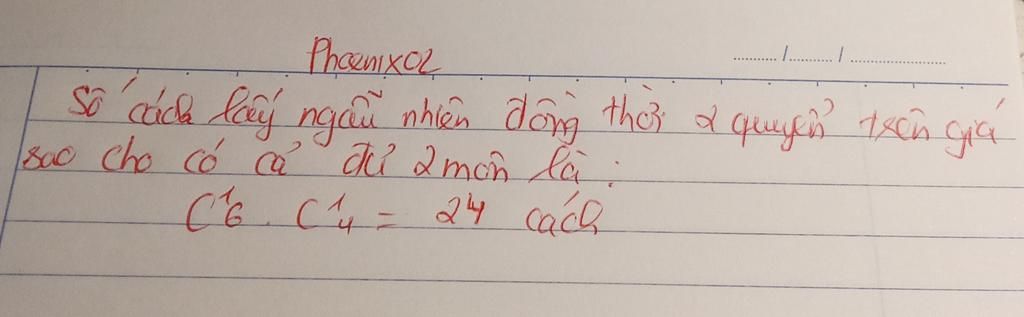 Phoenix02
........../........../......................
Số cách lấy ngẫu nhiên đồng thời 2 quyển trên giá
sao cho có cả đủ 2 môn là :
C¹₆ . C¹₄ = 24 cách